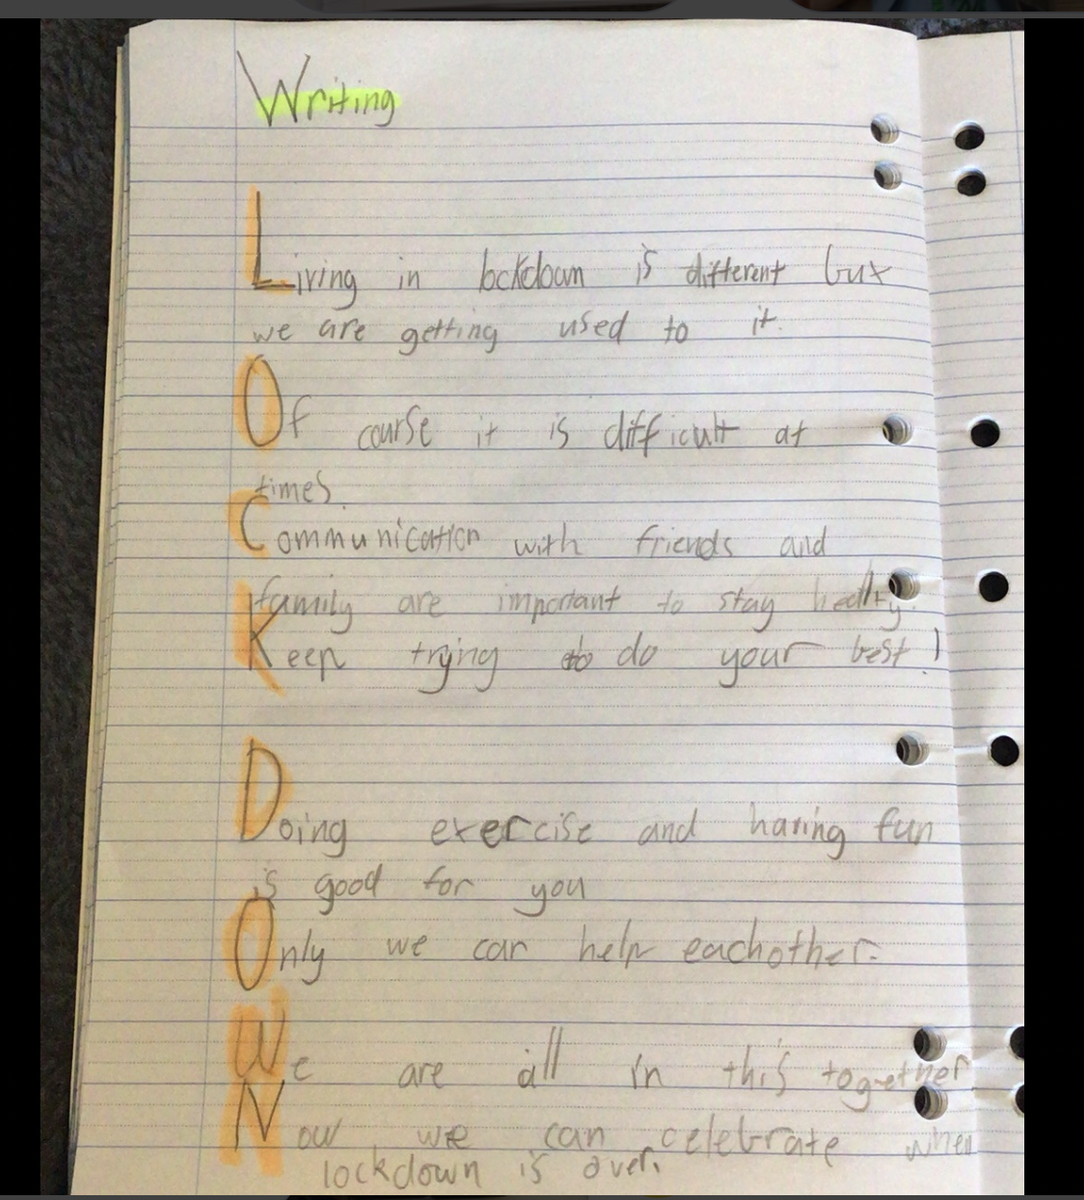 Writing
Living in lockdown is different but
we are getting used to it.
Of course it is difficult at
times.
Communication with friends and
family are important to stay
Keep trying to do your best!
Doing exercise and having fun
is good for you
Only we can help eachother.
We are all in this together
Now we can celebrate when
lockdown is over.